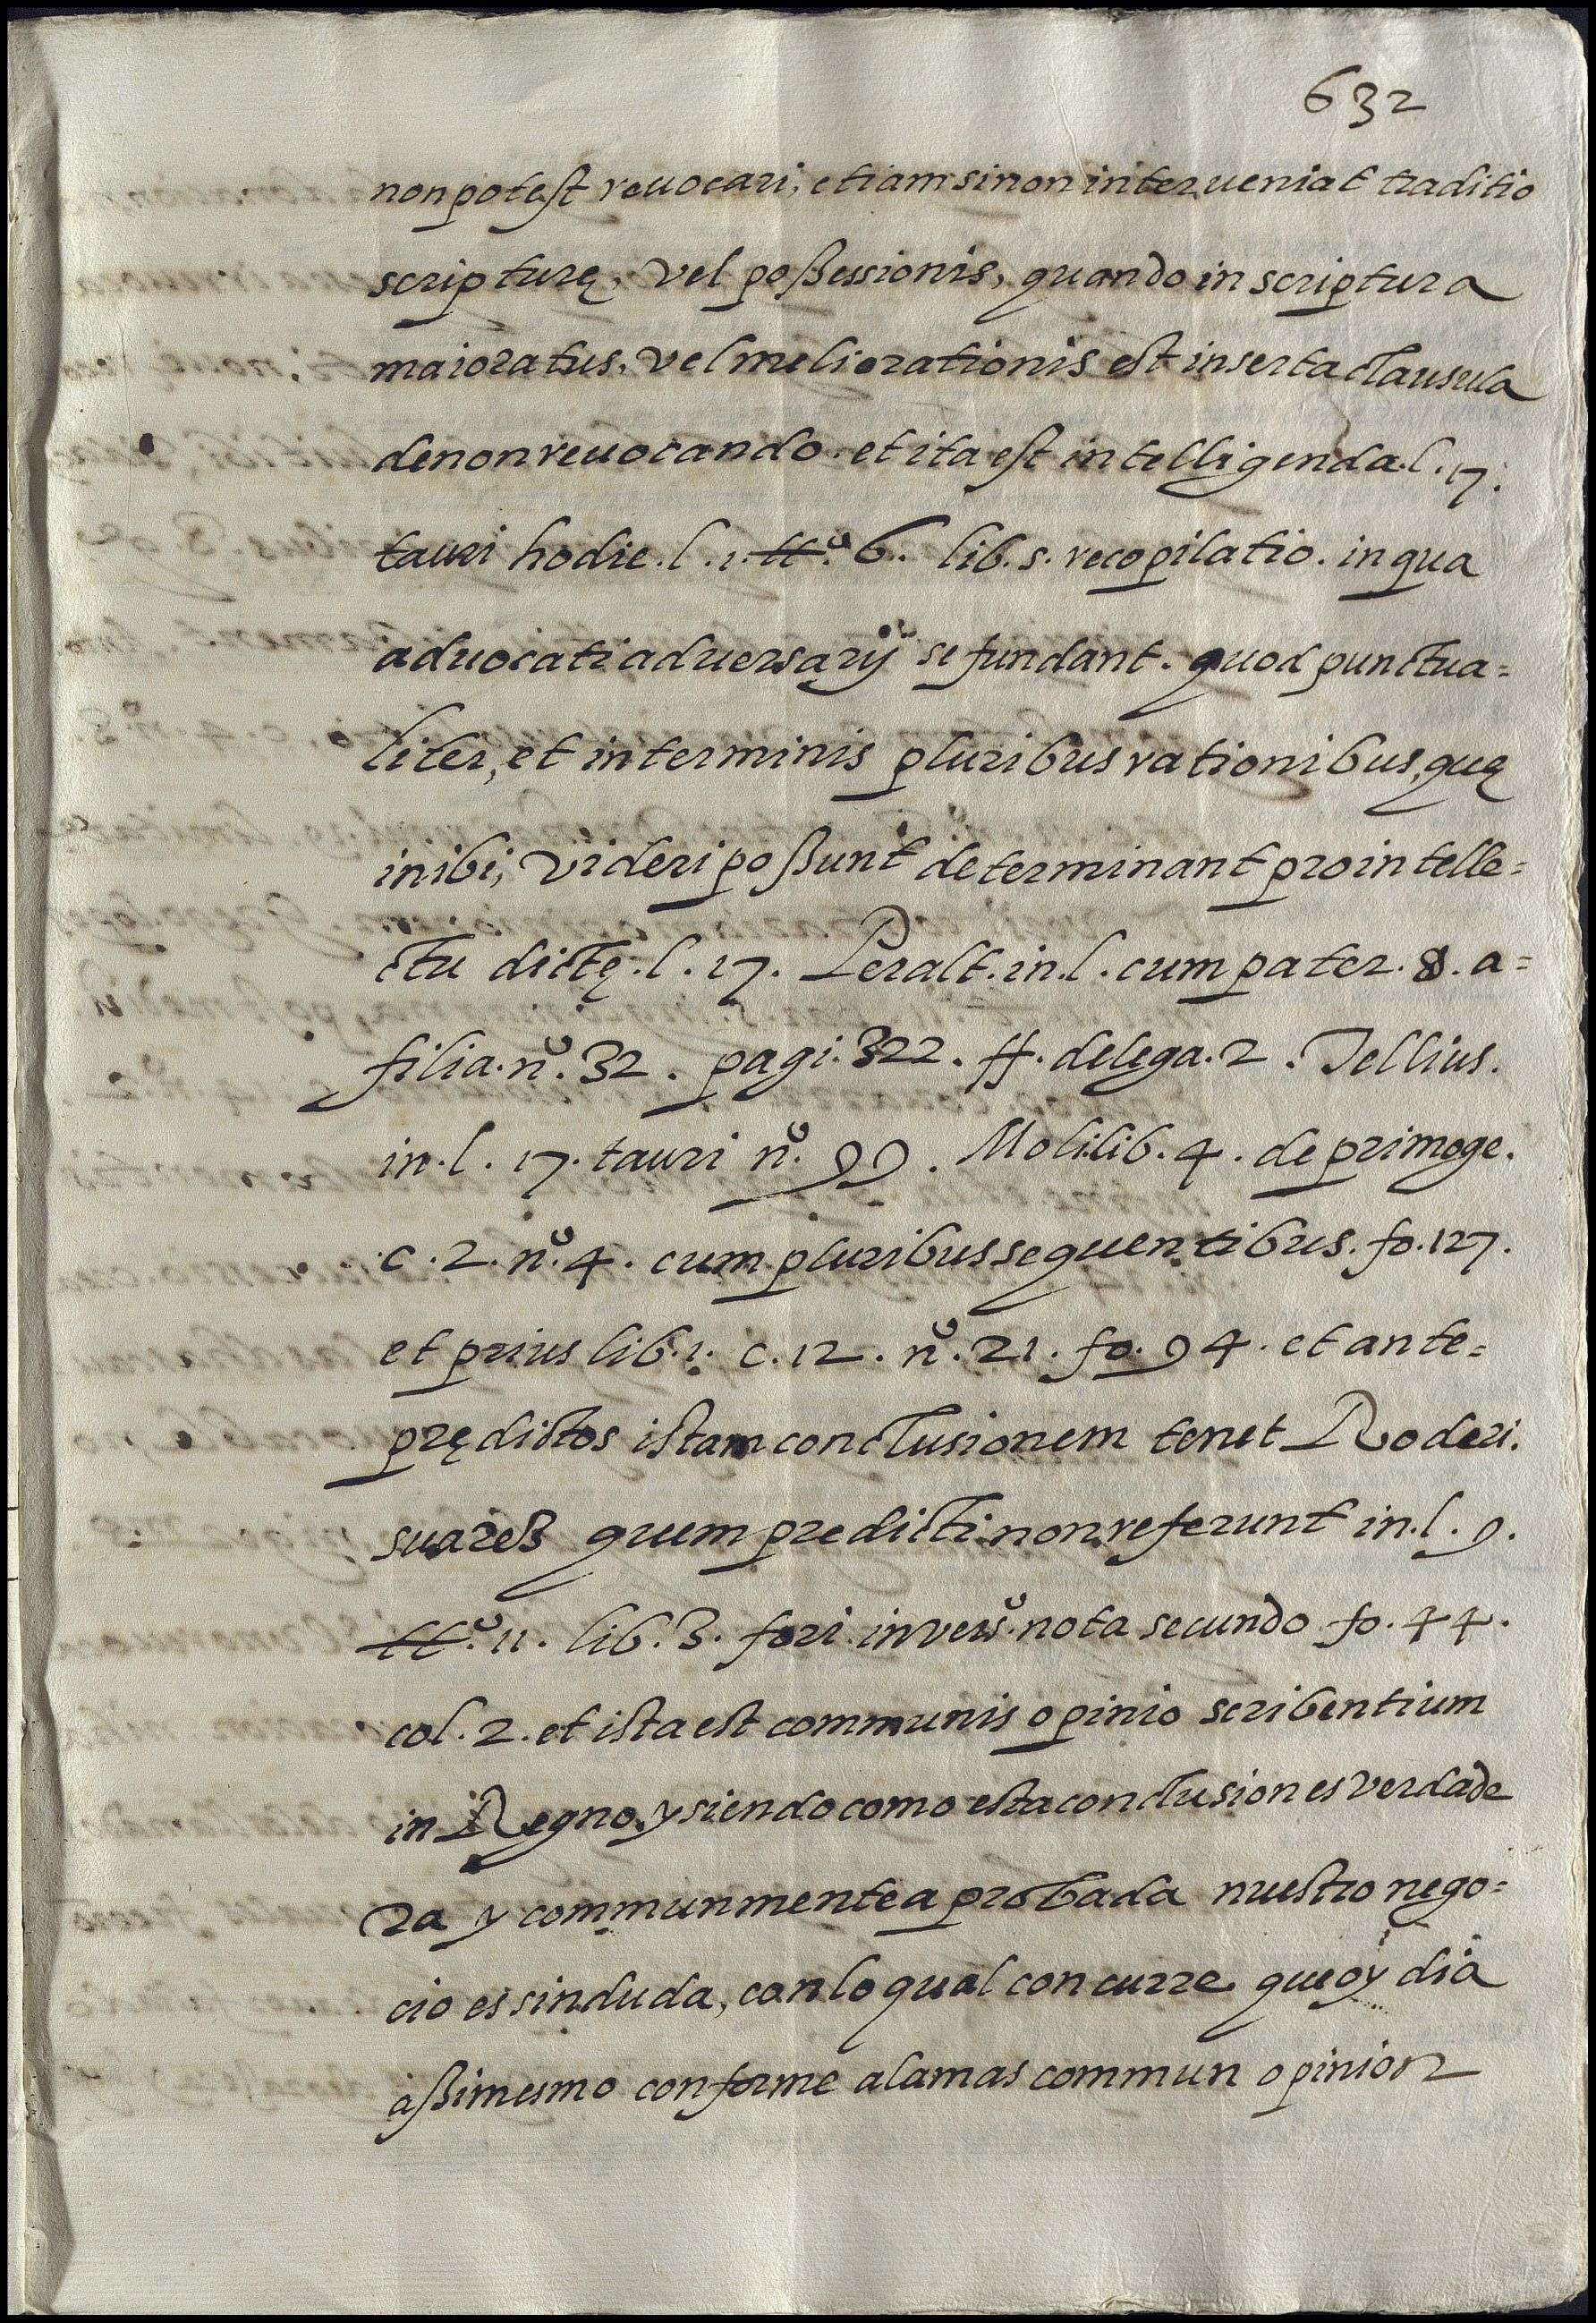 632
non potest reuocari, etiam si non interueniat traditio
scripturę, vel poßessionis, quando in scriptura
maioratus, vel meliorationis est inserta clausula
de non reuocando. et ita est intelligenda. l. 17.
tauri hodie. l. 1. tt.º 6. lib. 5. recopilatio. in qua
aduocati aduersarij se fundant. quod punctua=
liter, et in terminis pluribus rationibus, quę
inibi, videri poßunt determinant pro intelle=
ctu dictę. l. 17. Peralt. in. l. cum pater. §. a=
filia. nº. 32. pagi. 322. ff. de lega. 2. Tellius.
in. l. 17. tauri nº. 99. Moli. lib. 4. de primoge.
c. 2. nº. 4. cum pluribus sequentibus. fo. 127.
et prius lib. 1. c. 12. nº. 21. fo. 94. et ante=
prędictos istam conclusionem tenet Roderi.
suarez quem predicti non referunt in. l. 9.
tt.º 11. lib. 3. fori in versº. nota secundo fo. 44.
col. 2. et ista est communis opinio scribentium
in Regno. y siendo como esta conclusion es verdade
ra y communmente aprobada nuestro nego=
cio es sin duda, con lo qual concurre que oy dia
aßimesmo conforme a la mas commun opinion